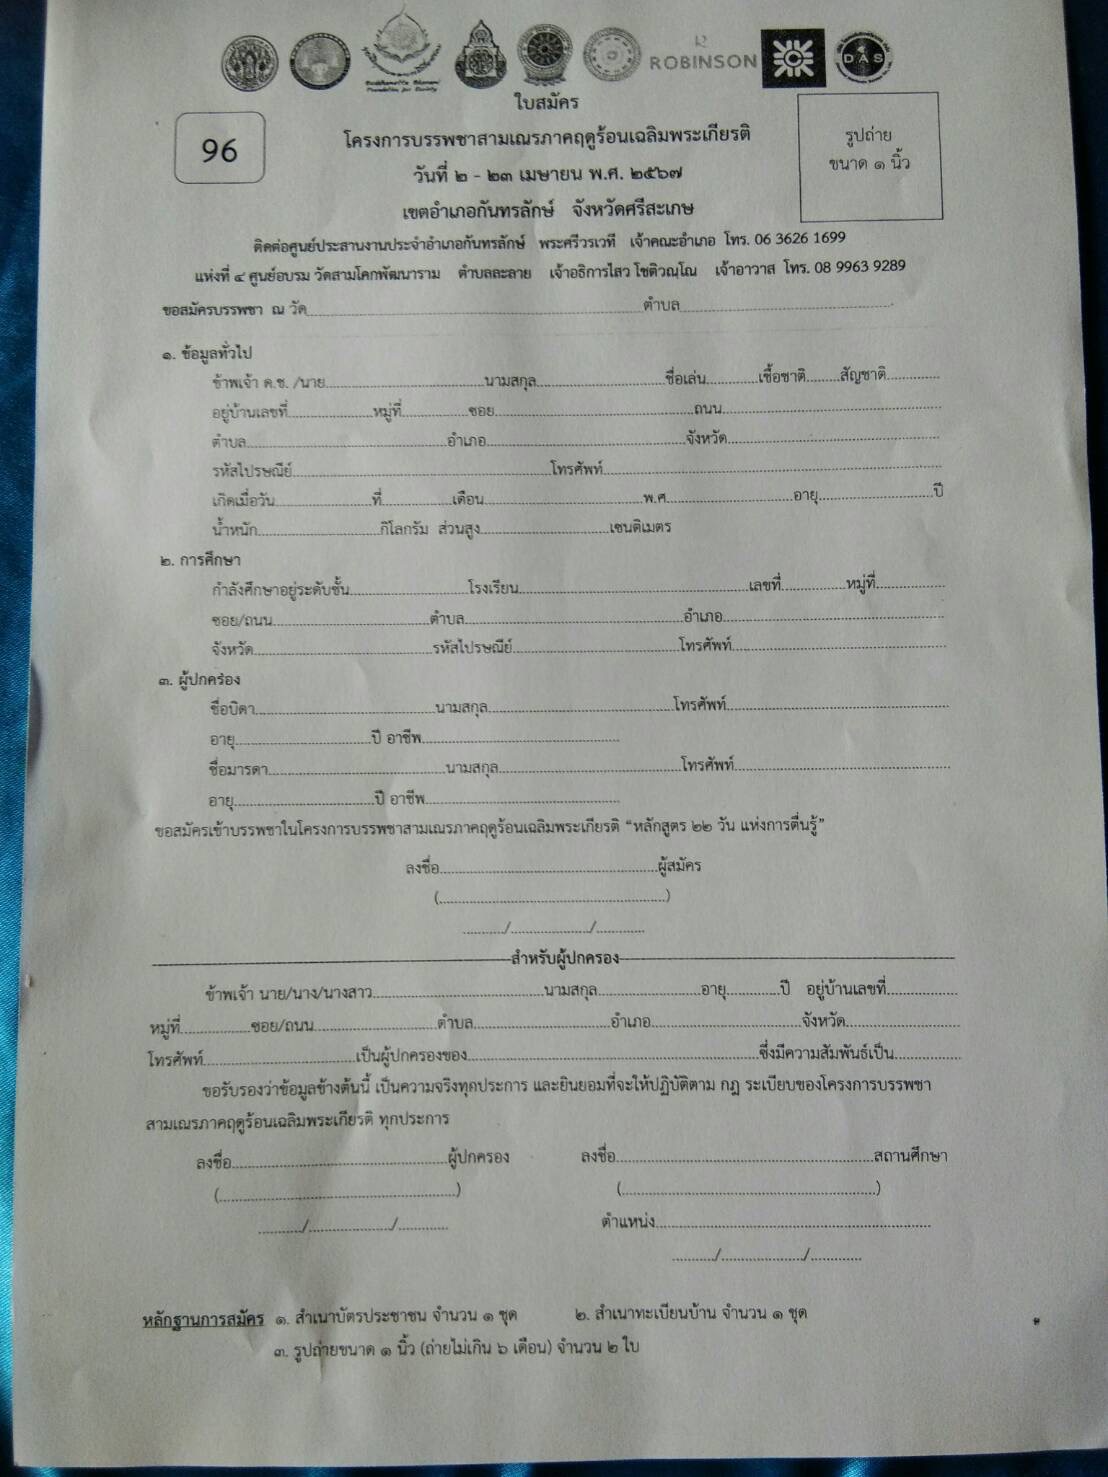 ROBINSON
DAS
ใบสมัคร
96
โครงการบรรพชาสามเณรภาคฤดูร้อนเฉลิมพระเกียรติ
รูปถ่าย
ขนาด ๑ นิ้ว
วันที่ ๒ - ๒๓ เมษายน พ.ศ. ๒๕๖๗
เขตอำเภอกันทรลักษ์ จังหวัดศรีสะเกษ
ติดต่อศูนย์ประสานงานประจำอำเภอกันทรลักษ์ พระศรีวรเวที เจ้าคณะอำเภอ โทร. 06 3626 1699
แห่งที่ ๔ ศูนย์อบรม วัดสามโคกพัฒนาราม ตำบลละลาย เจ้าอธิการไสว โชติวณฺโณ เจ้าอาวาส โทร. 08 9963 9289
ขอสมัครบรรพชา ณ วัด...............ตำบล...............
๑. ข้อมูลทั่วไป
ข้าพเจ้า ด.ช. /นาย...............นามสกุล...............ชื่อเล่น...............เชื้อชาติ........สัญชาติ...............
อยู่บ้านเลขที่...............หมู่ที่...............ซอย...............ถนน...............
ตำบล...............อำเภอ...............จังหวัด...............
รหัสไปรษณีย์...............โทรศัพท์...............
เกิดเมื่อวัน...............ที่...............เดือน...............พ.ศ...............อายุ...............ปี
น้ำหนัก...............กิโลกรัม ส่วนสูง...............เซนติเมตร
๒. การศึกษา
กำลังศึกษาอยู่ระดับชั้น...............โรงเรียน...............เลขที่...............หมู่ที่...............
ซอย/ถนน...............ตำบล...............อำเภอ...............
จังหวัด...............รหัสไปรษณีย์...............โทรศัพท์...............
๓. ผู้ปกครอง
ชื่อบิดา...............นามสกุล...............โทรศัพท์...............
อายุ...............ปี อาชีพ...............
ชื่อมารดา...............นามสกุล...............โทรศัพท์...............
อายุ...............ปี อาชีพ...............
ขอสมัครเข้าบรรพชาในโครงการบรรพชาสามเณรภาคฤดูร้อนเฉลิมพระเกียรติ “หลักสูตร ๒๒ วัน แห่งการตื่นรู้”
ลงชื่อ...............ผู้สมัคร
(...............)
........../...................../............
สำหรับผู้ปกครอง
ข้าพเจ้า นาย/นาง/นางสาว...............นามสกุล...............อายุ............ปี อยู่บ้านเลขที่...............
หมู่ที่...............ซอย/ถนน...............ตำบล...............อำเภอ...............จังหวัด...............
โทรศัพท์...............เป็นผู้ปกครองของ...............ซึ่งมีความสัมพันธ์เป็น...............
ขอรับรองว่าข้อมูลข้างต้นนี้ เป็นความจริงทุกประการ และยินยอมที่จะให้ปฏิบัติตาม กฎ ระเบียบของโครงการบรรพชา
สามเณรภาคฤดูร้อนเฉลิมพระเกียรติ ทุกประการ
ลงชื่อ...............ผู้ปกครอง ลงชื่อ...............สถานศึกษา
(...............) (...............)
........../...................../............ ตำแหน่ง...............
........../...................../............
หลักฐานการสมัคร ๑. สำเนาบัตรประชาชน จำนวน ๑ ชุด ๒. สำเนาทะเบียนบ้าน จำนวน ๑ ชุด
๓. รูปถ่ายขนาด ๑ นิ้ว (ถ่ายไม่เกิน ๖ เดือน) จำนวน ๒ ใบ